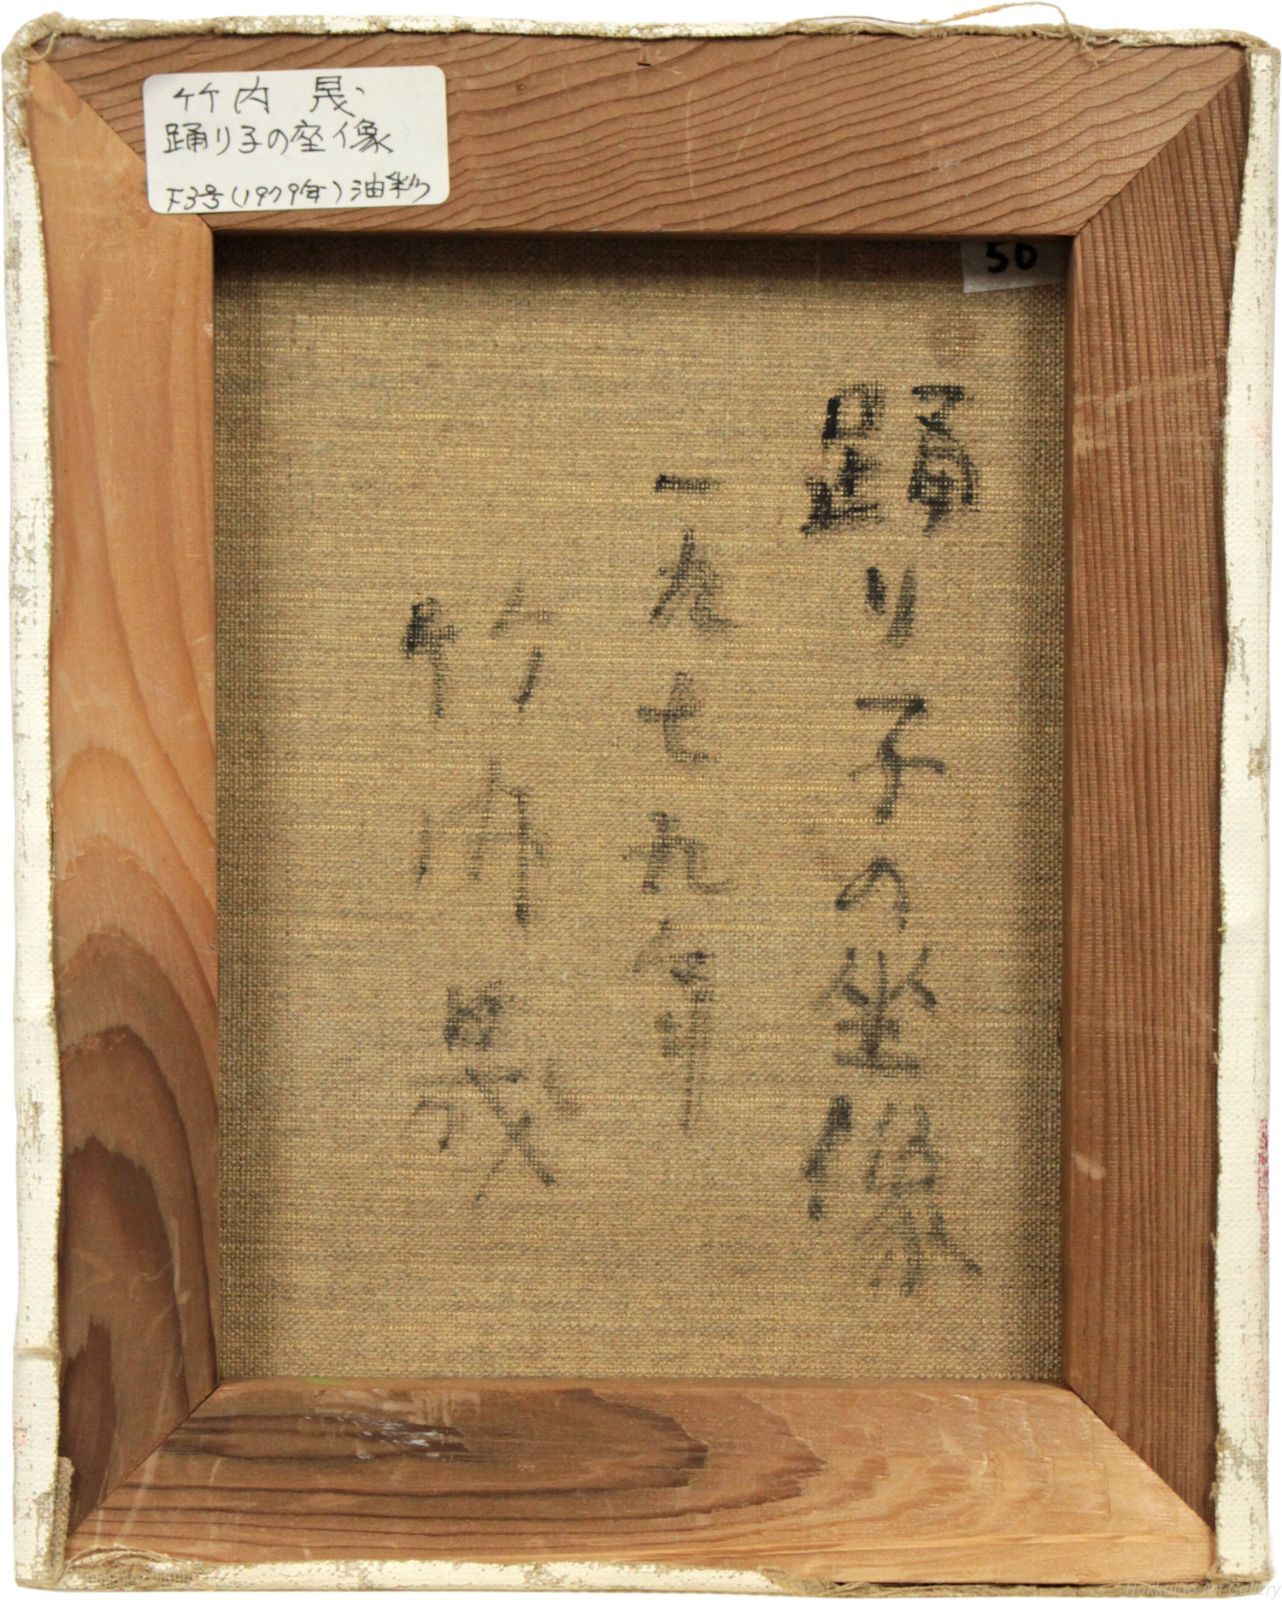 竹内 晟
踊り子の座像
F3号(1979年)油彩
50
踊り子の坐像
一九七九年
竹内晟
Hokkaido Art Gallery